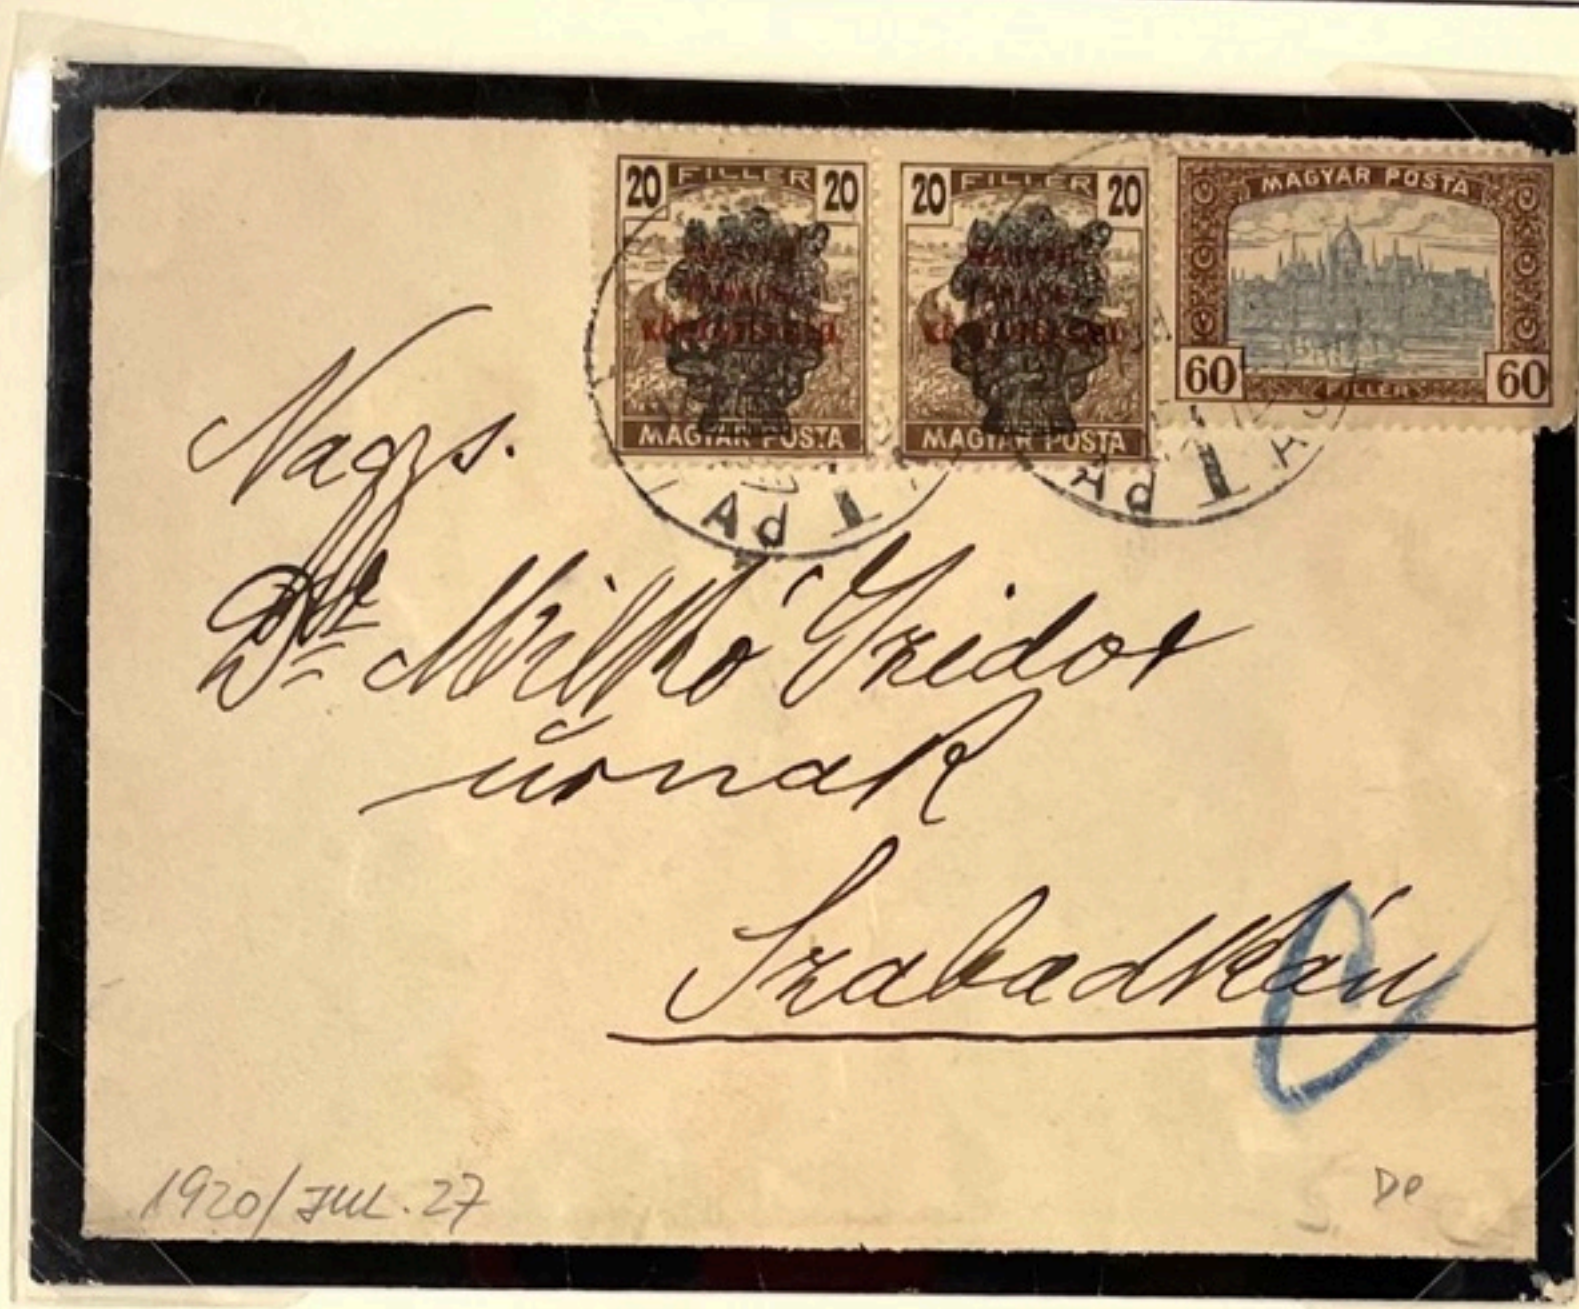 20 FILLER 20
MAGYAR POSTA
20 FILLER 20
MAGYAR POSTA
MAGYAR POSTA
60 FILLER 60
Nags.
Dr Milkó Izidor
úrnak
Szabadkán
1920/JUL.27
De